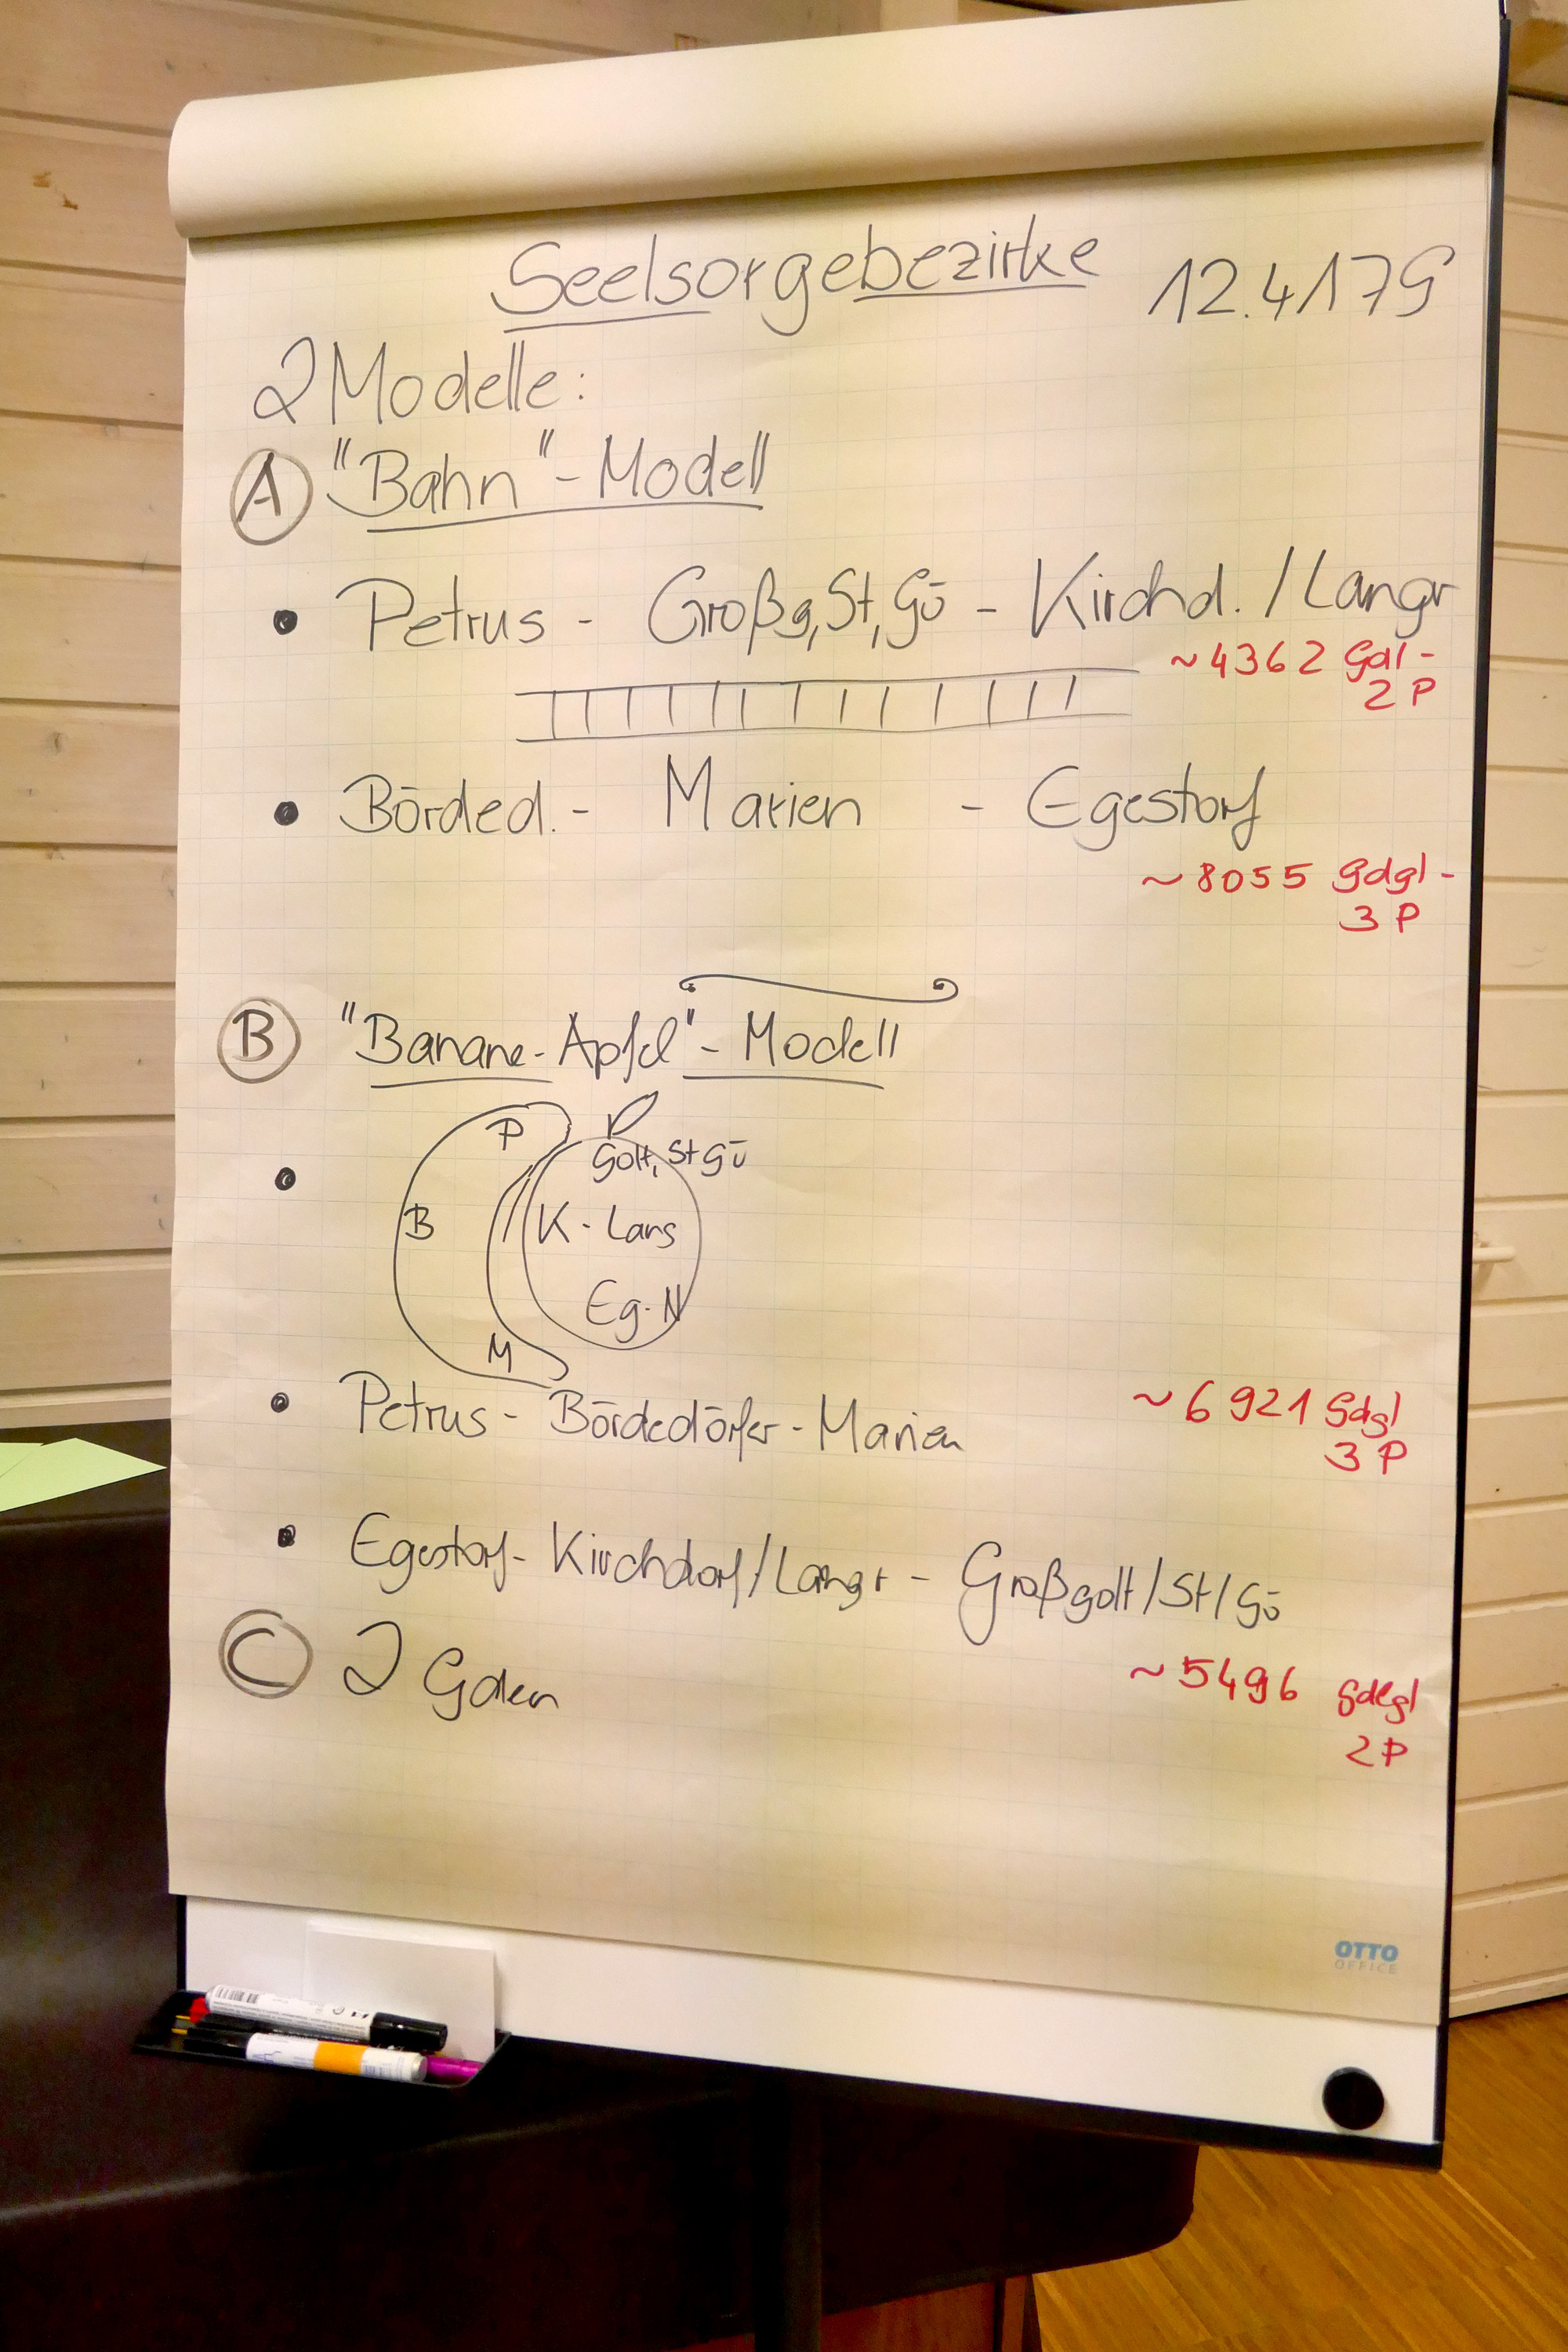 Seelsorgebezirke 12.4179
2 Modelle:
A "Bahn"-Modell
• Petrus - Großg, St, Gö - Kirchd. / Langr
~4362 Gdl -
2 P
• Börded. - Marien - Egestorf
~8055 Gdgl -
3 P
B "Banane-Apfel"-Modell
P
Golt, St Gö
B
K - Lans
Eg - N
M
• Petrus - Bördedörfer - Marien
~6921 Gdgl
3 P
• Egestorf - Kirchdorf/Langr - Großgolt/St/Gö
C 2 Gden
~5496 Gdgl
2 P
OTTO
OFFICE